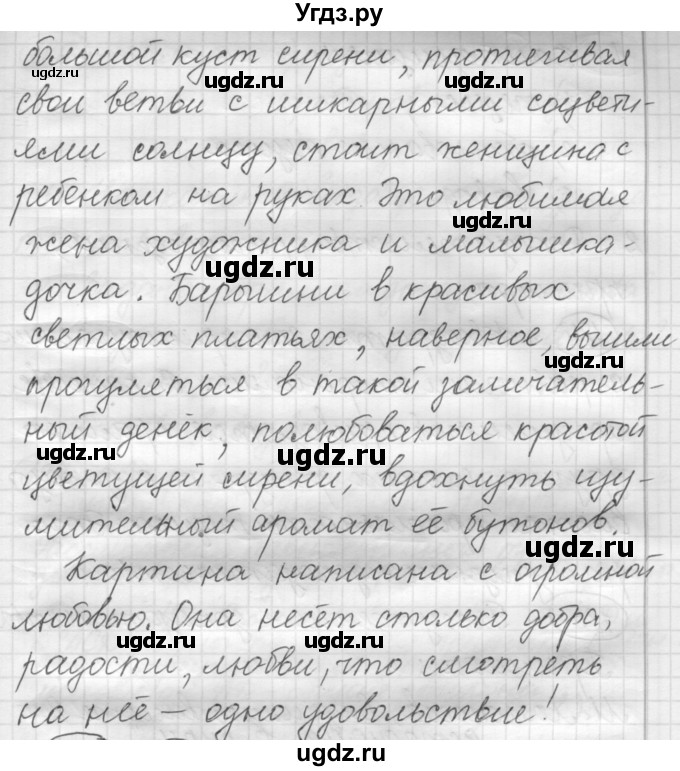 Угдз.ру
большой куст сирени, протягивая
ugdz.ru ugdz.ru
свои ветви с шикарными соцвети-
ями солнцу, стоит женщина с
ребенком на руках. Это любимая
ugdz.ru
жена художника и малышка-
ugdz.ru
дочка. Барышни в красивых
светлых платьях, наверное, вышли
ugdz.ru
прогуляться в такой замечатель-
ный денёк, полюбоваться красотой
ugdz.ru ugdz.ru
цветущей сирени, вдохнуть изу-
мительный аромат её бутонов.
ugdz.ru
Картина написана с огромной
любовью. Она несёт столько добра,
ugdz.ru ugdz.ru
радости, любви, что смотреть
на неё – одно удовольствие!
ugdz.ru